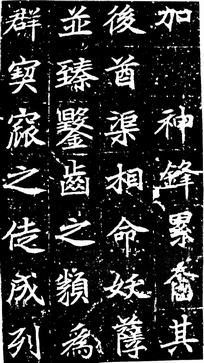 加 神鋒累奮其
後酋渠相命妖孽
並臻鑿齒之類為
群窫窳之徒成列